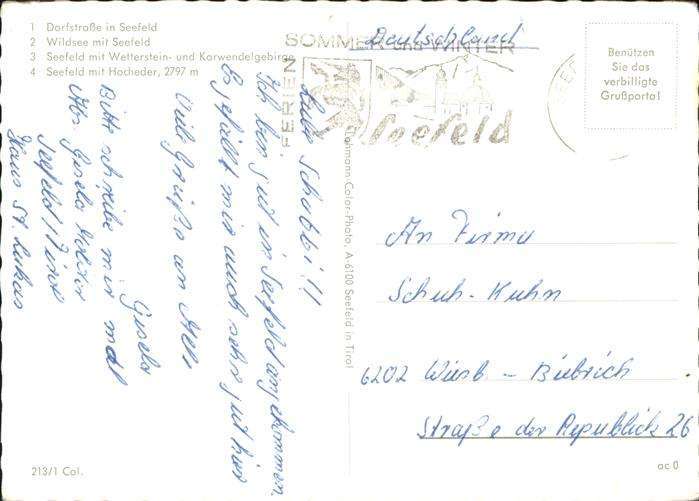 1 Dorfstraße in Seefeld
2 Wildsee mit Seefeld
3 Seefeld mit Wetterstein- und Karwendelgebirge
4 Seefeld mit Hocheder, 2797 m
Liebe Schatzi!!
Ich bin gut in Seefeld angekommen.
Es gefällt mir auch sehr gut hier
Viele Grüße an Alle
Gisela
Bitte schreibe mir mal
Abs. Gisela
Seefeld/Tirol
Haus St. Lukas
213/1 Col.
Color-Photo, A-6100 Seefeld in Tirol
Deutschland
SOMMER und WINTER
FERIEN
Seefeld
Benützen
Sie das
verbilligte
Grußporto!
An Firma
Schuh-Kuhn
6202 Wiesb - Biebrich
Straße der Republick 26
ac 0